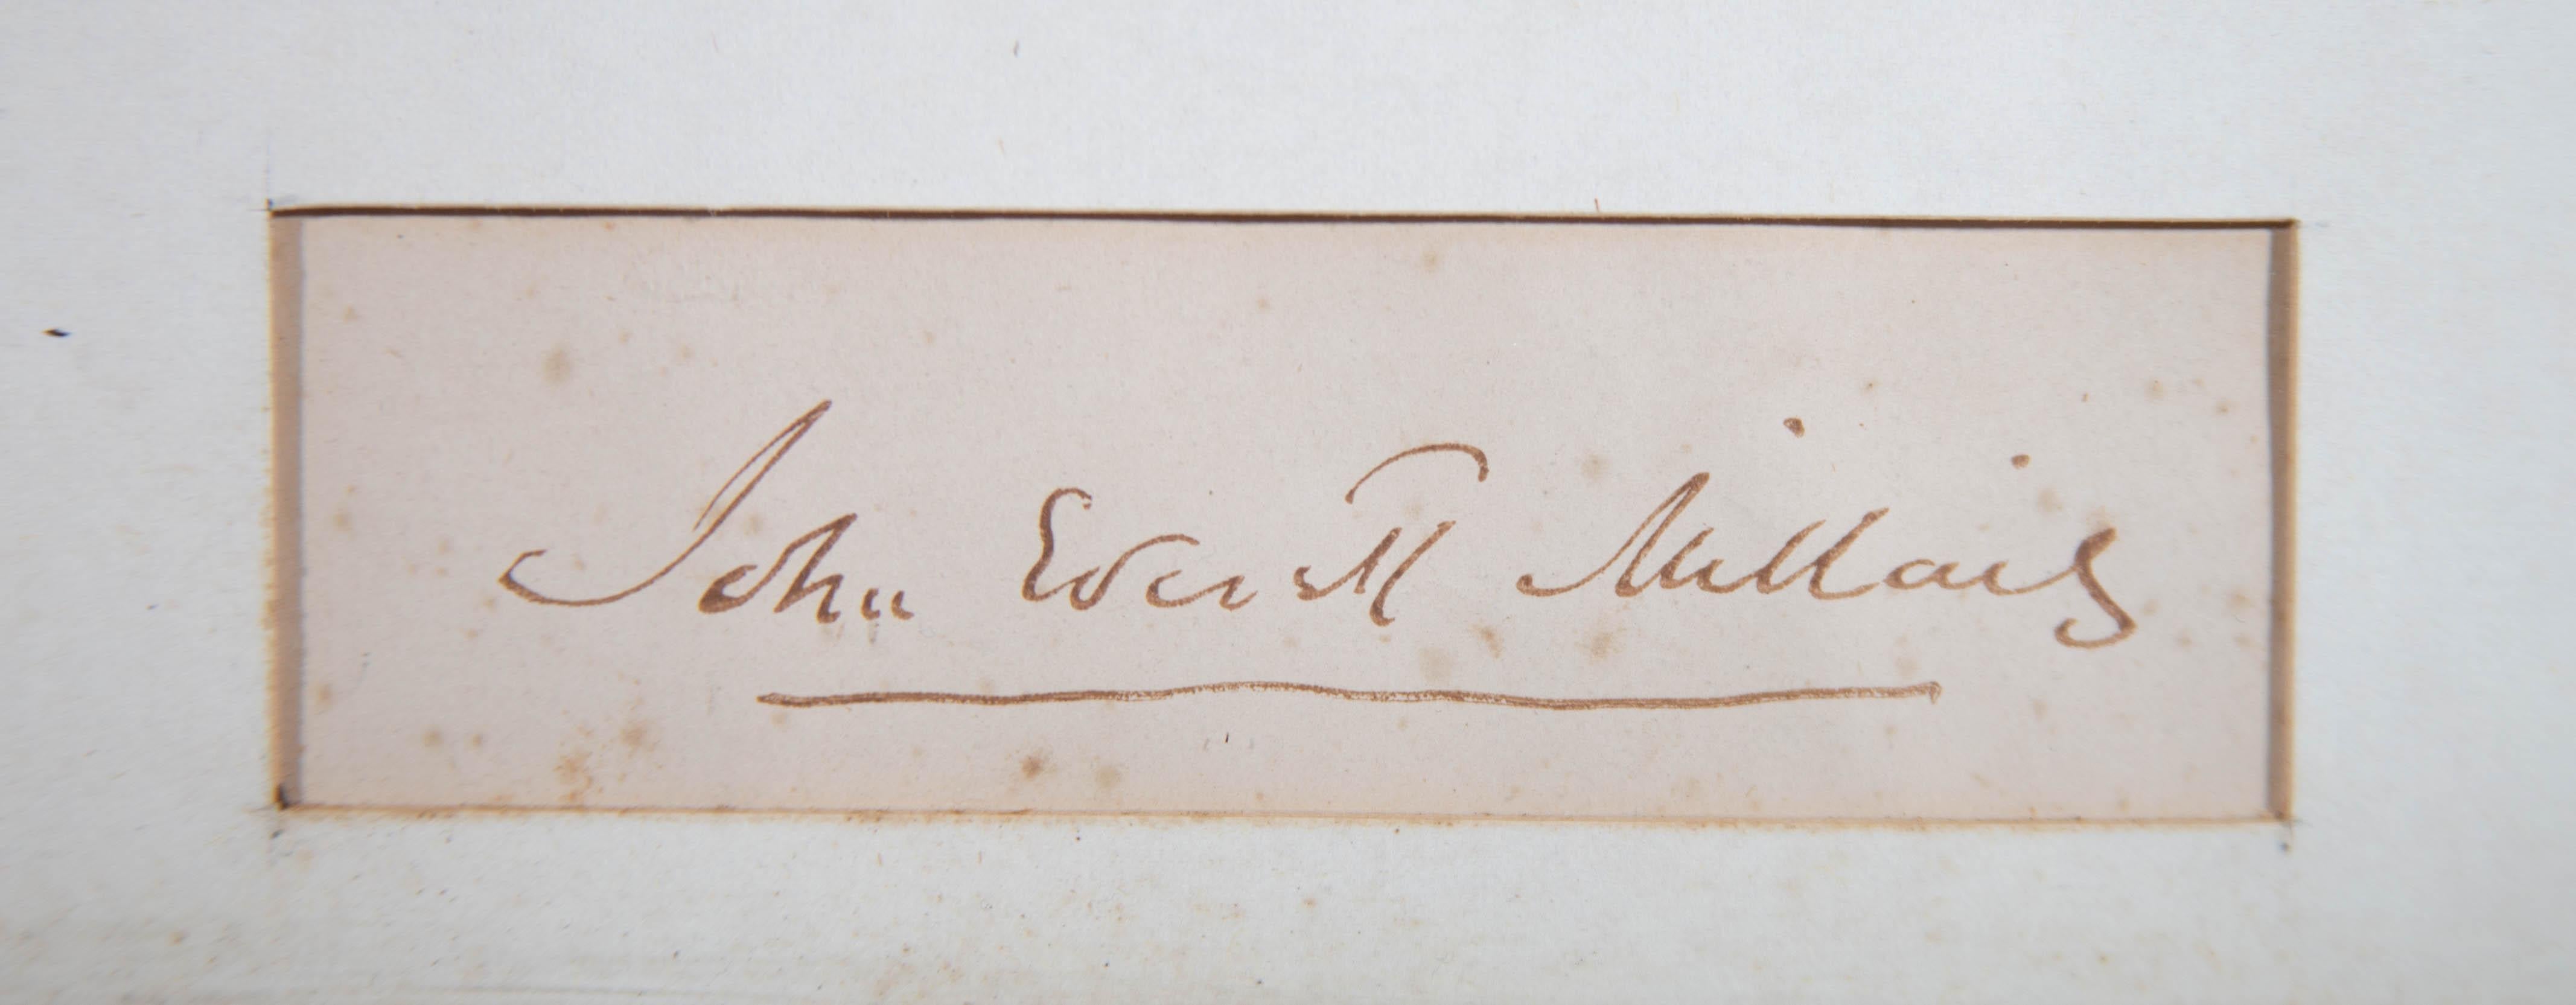 John Everett Millais